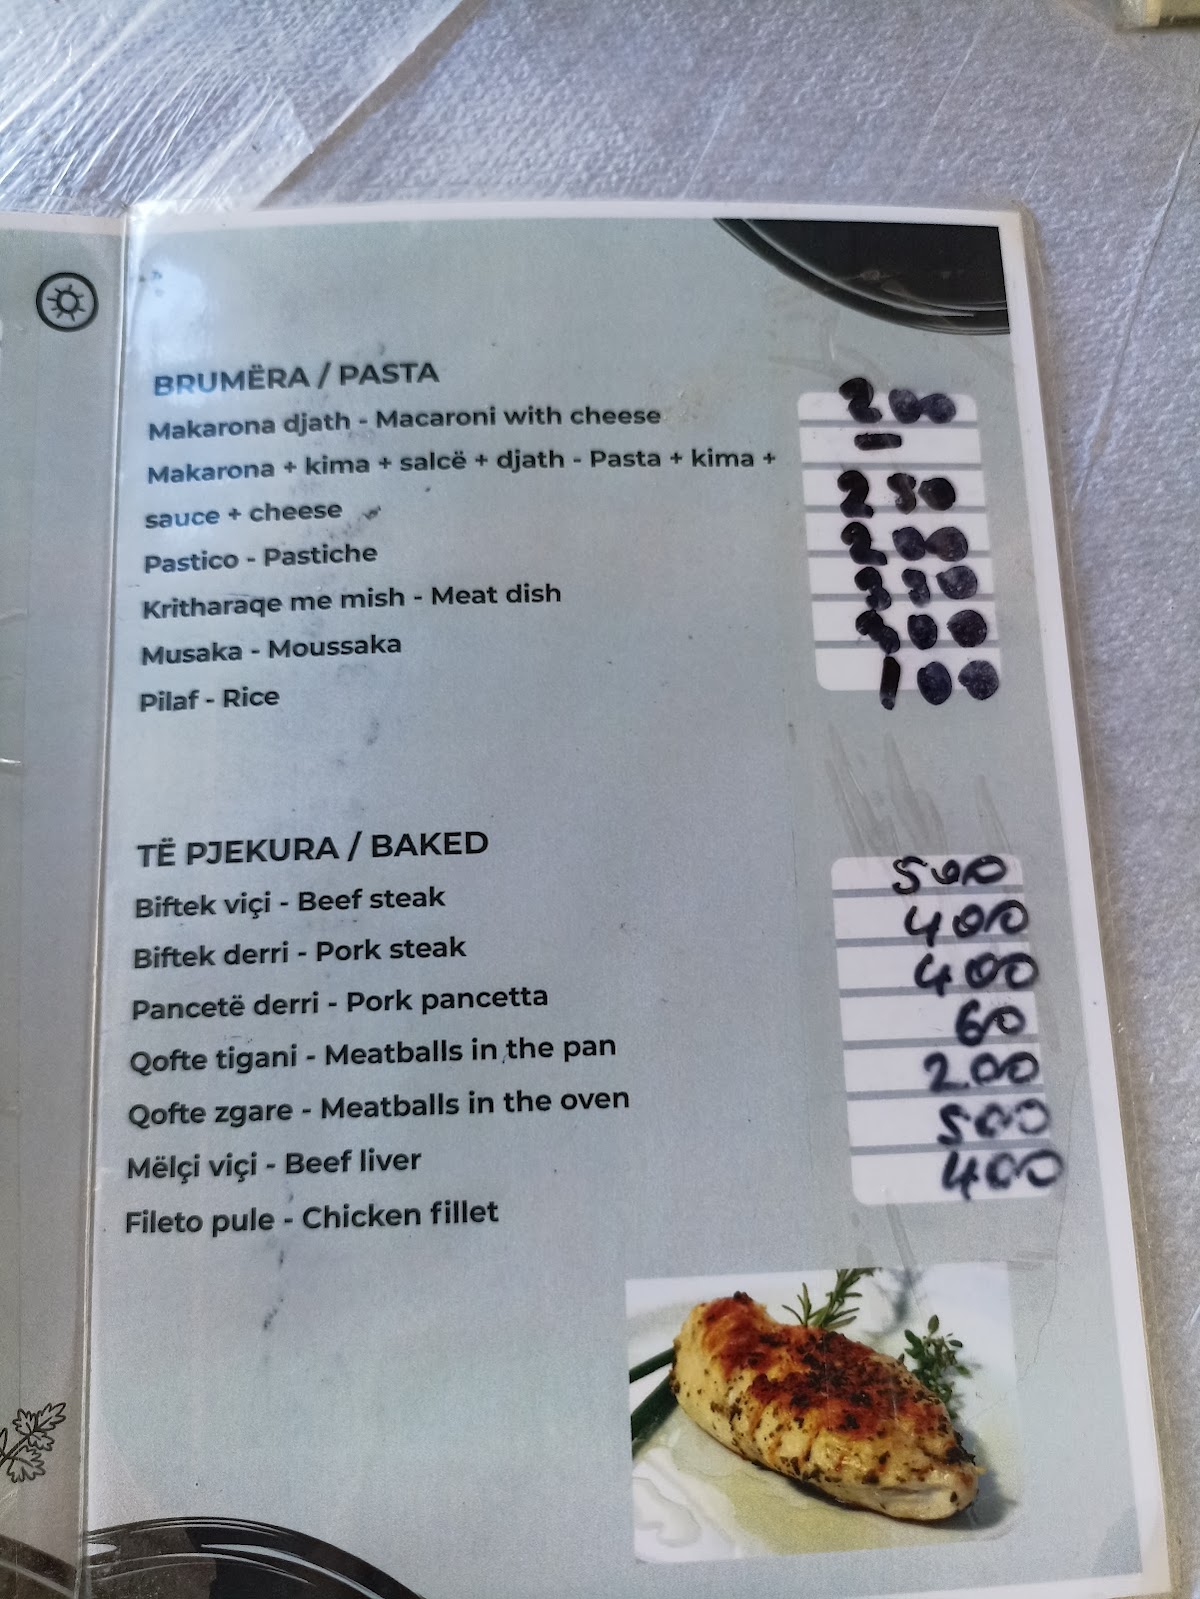 BRUMËRA / PASTA
Makarona djath - Macaroni with cheese 200
Makarona + kima + salcë + djath - Pasta + kima + -
sauce + cheese 250
Pastico - Pastiche 200
Kritharaqe me mish - Meat dish
Musaka - Moussaka 300
Pilaf - Rice 100
TË PJEKURA / BAKED
Biftek viçi - Beef steak 500
Biftek derri - Pork steak 400
Pancetë derri - Pork pancetta 400
Qofte tigani - Meatballs in the pan 60
Qofte zgare - Meatballs in the oven 200
Mëlçi viçi - Beef liver 500
Fileto pule - Chicken fillet 400